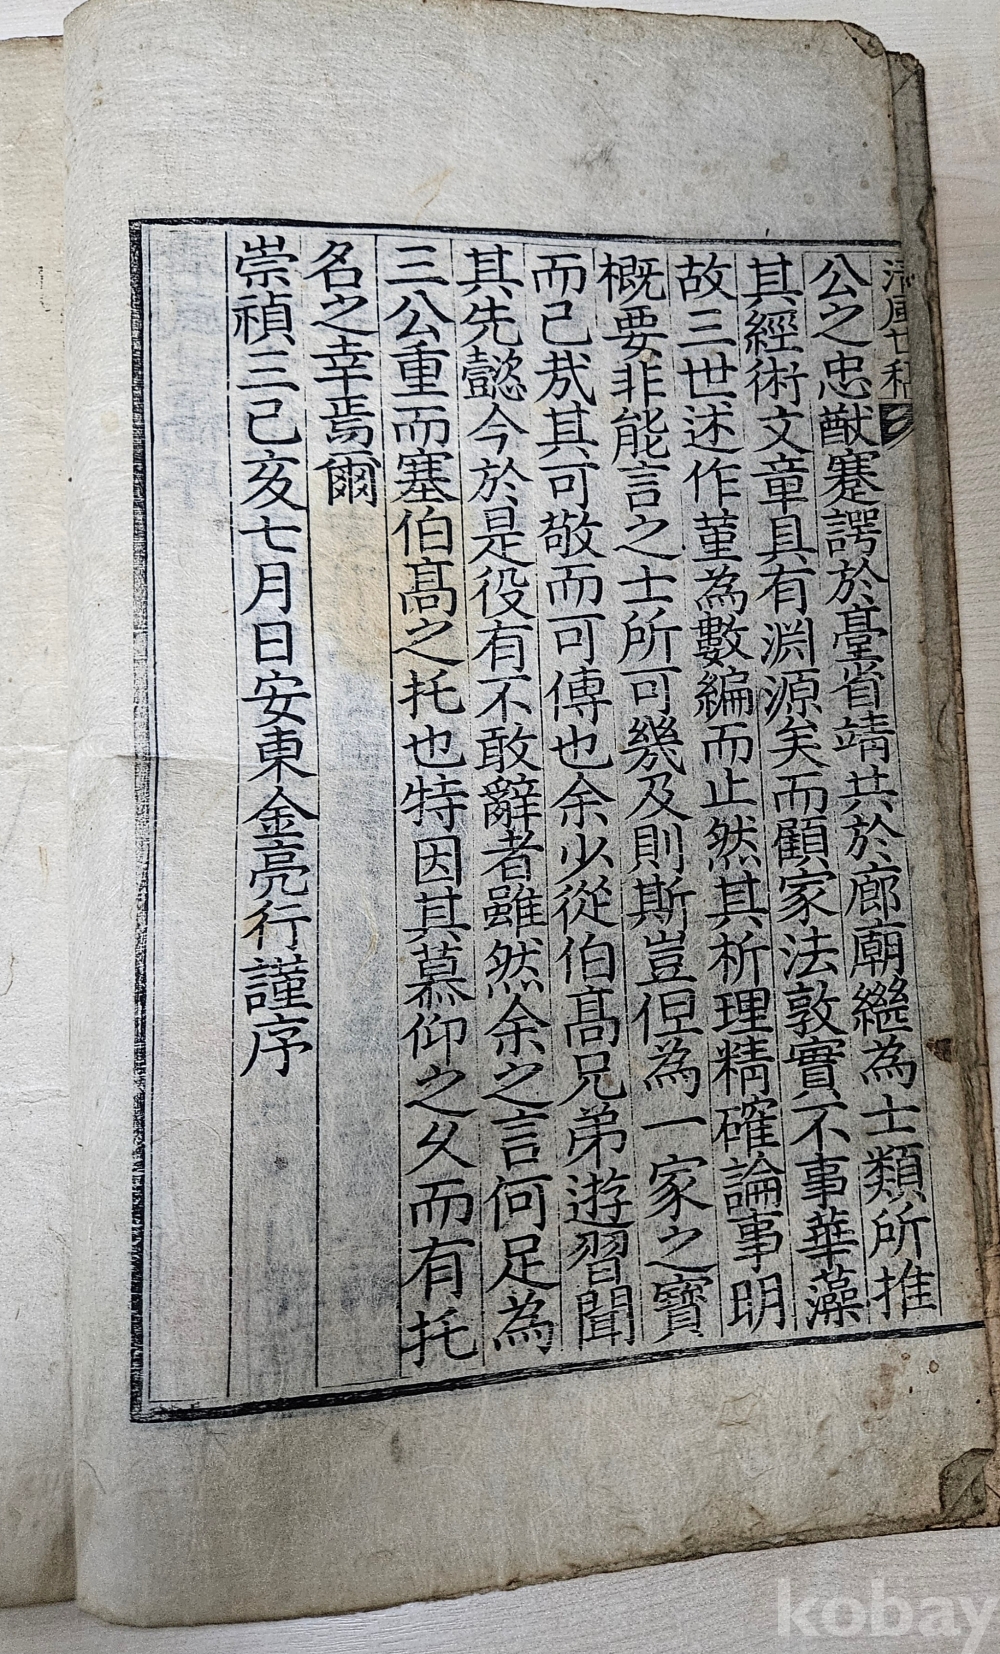 公之忠猷蹇諤於臺省靖共於廊廟繼為士類所推
其經術文章具有淵源矣而顧家法敦實不事華藻
故三世述作菫為數編而止然其析理精確論事明
概要非能言之士所可幾及則斯豈但為一家之寶
而已㢤其可敬而可傳也余少從伯高兄弟遊習聞
其先懿今於是役有不敢辭者雖然余之言何足為
三公重而塞伯高之托也特因其慕仰之久而有托
名之幸焉爾
崇禎三己亥七月日安東金亮行謹序
kobay